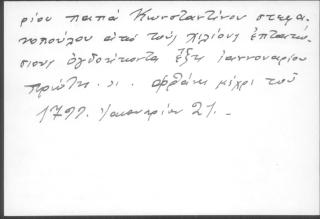 ρίου παπά Κωνσταντίνου στεφα-
νοπούλου εἰς τούς χιλίους ἑπτακο-
σίους ὀγδοήκοντα ἕξη ἰαννουαρίου
πρώτη . ι. φθάνει μέχρι τοῦ
1799. Ἰανουαρίου 21. _